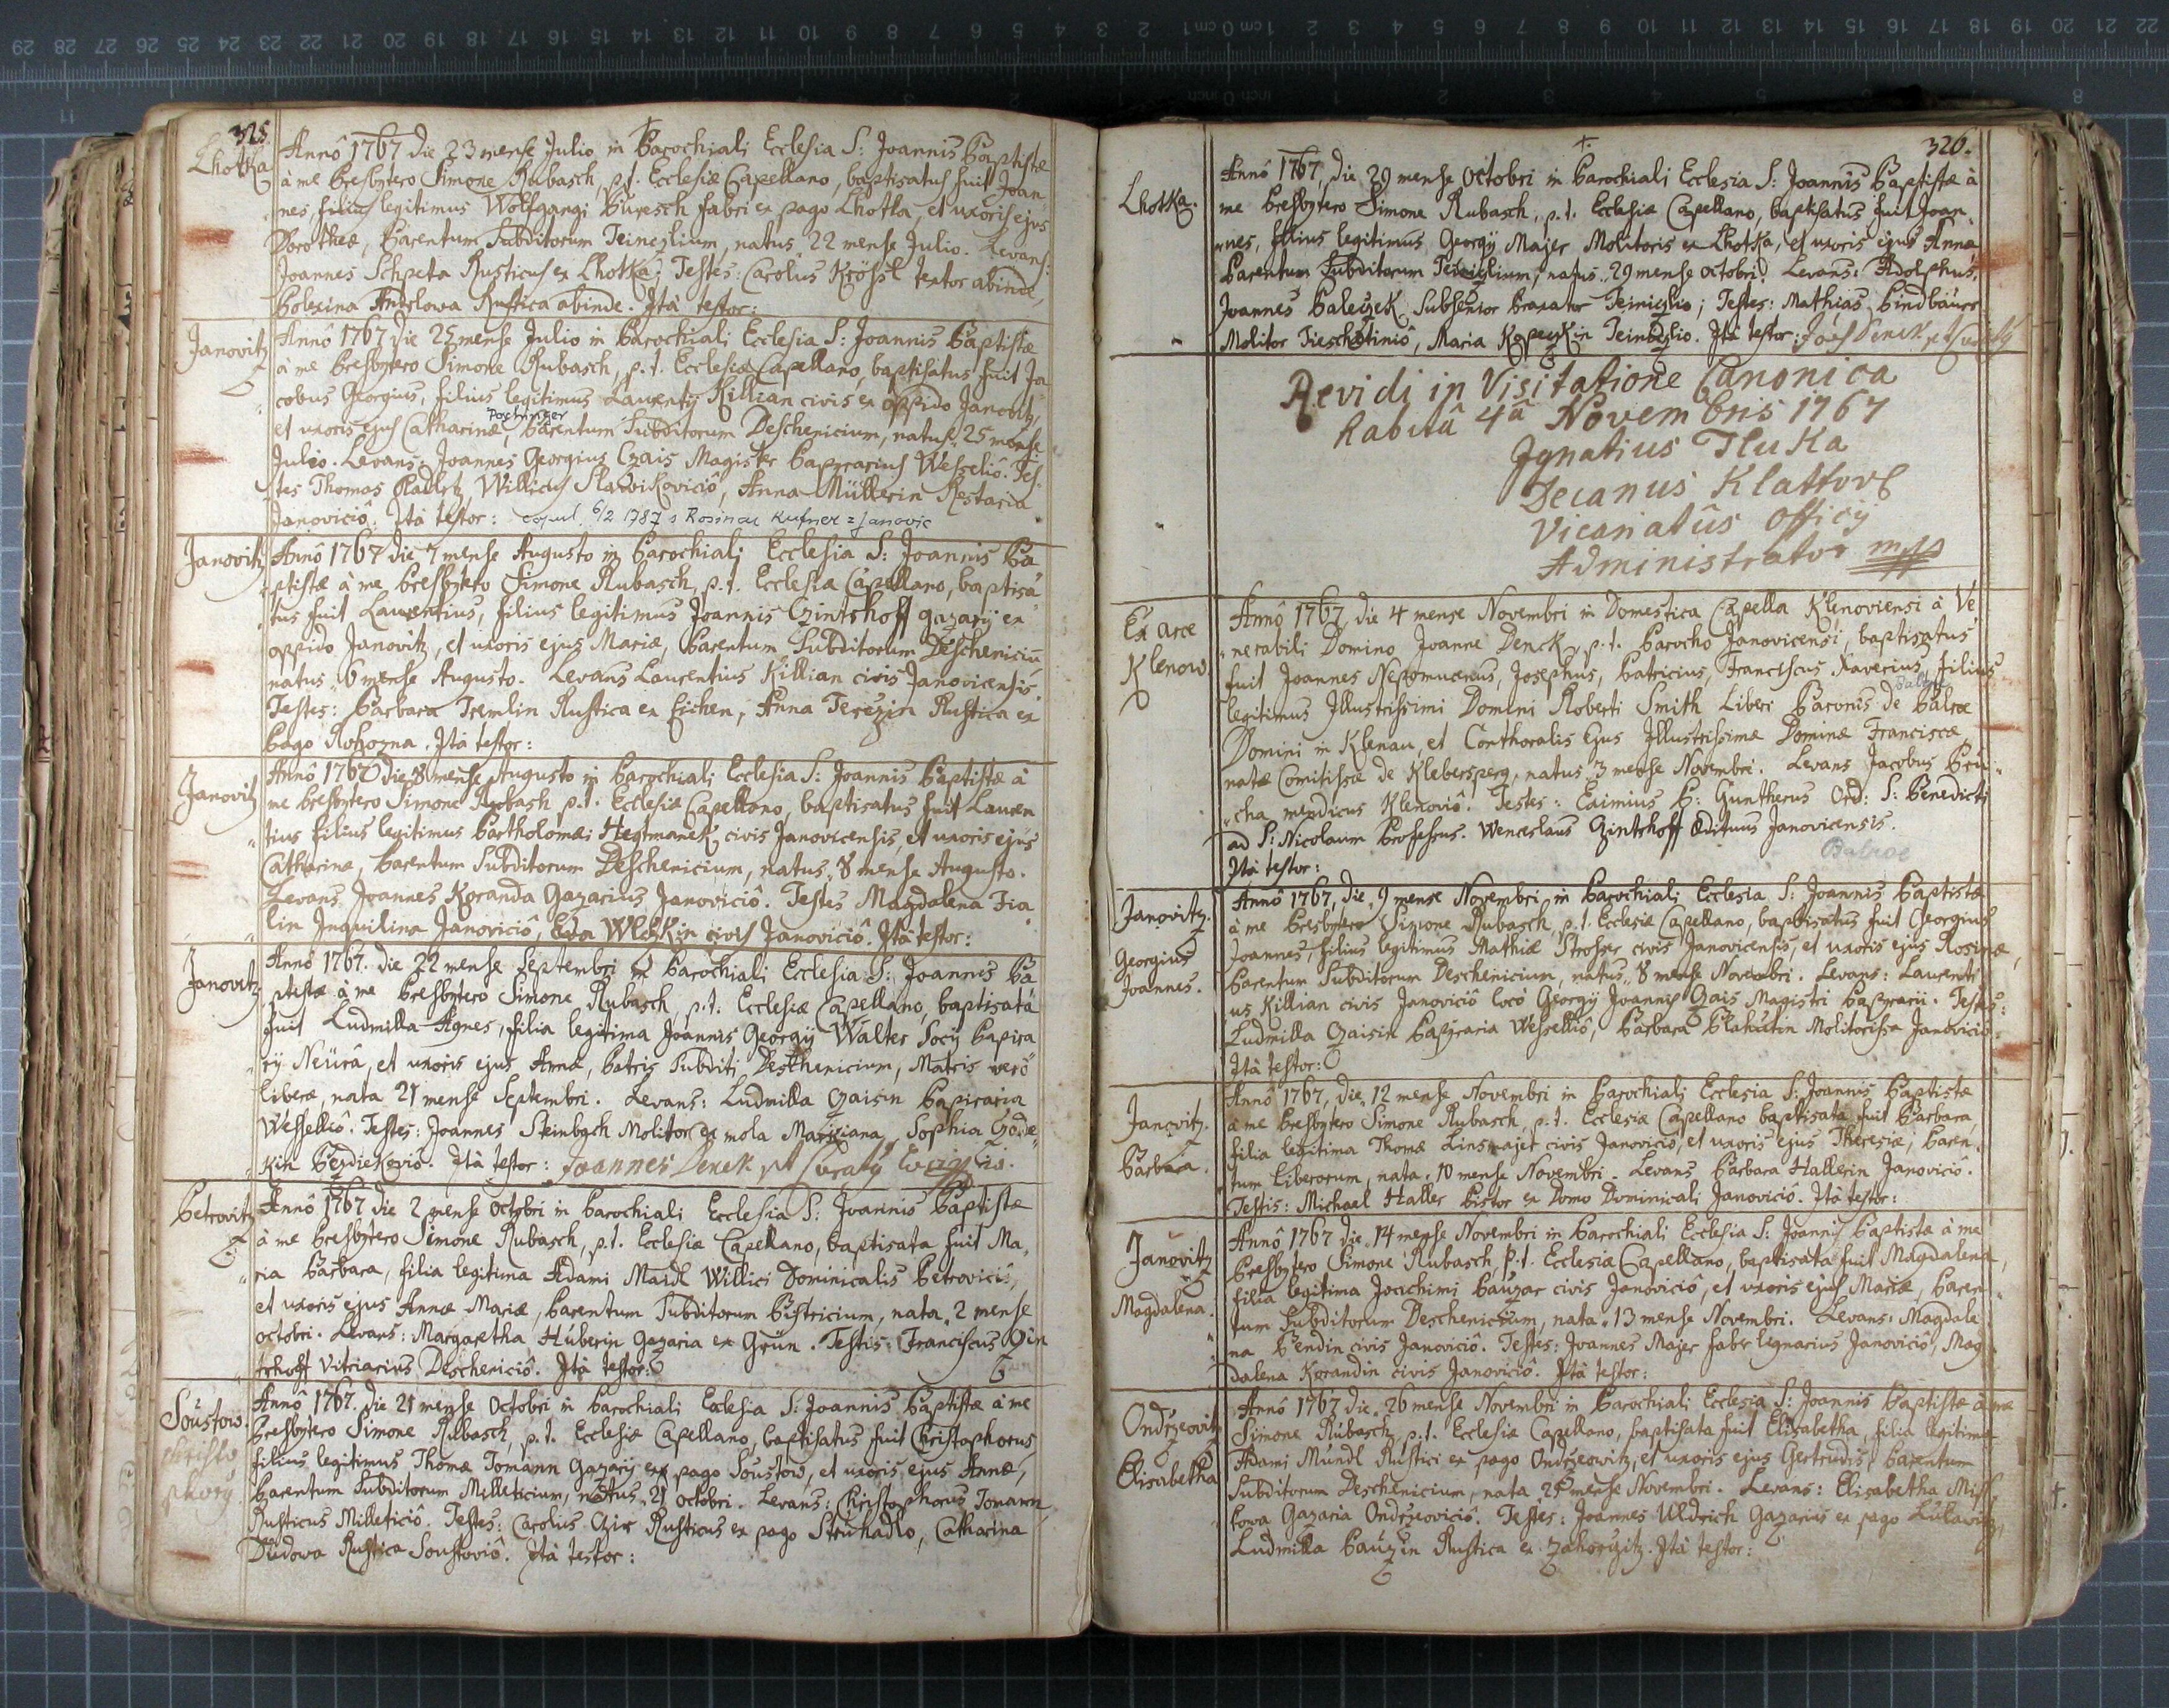 325.
Lhotka
Annô 1767 die 23 mense Julio in Parochiali Ecclesia S: Joannis Baptistæ
à me Presbytero Simone Rubasch, p.t. Ecclesiæ Capellano, baptisatus fuit Joan
nes, filius legitimus Wolfgangi Buresch fabri ex pago Lhotka, et uxoris ejus
Dorotheæ, Parentum Subditorum Teinezlium, natus 22 mense Julio. Levans:
Joannes Schpeta Rusticus ex Lhotka; Testes: Carolus Krössl textor abinde,
Polexina Andrlowa Rustica abinde. Ità testor:
Janovitz
Annô 1767 die 25 mense Julio in Parochiali Ecclesia S: Joannis Baptistæ
à me Presbytero Simone Rubasch, p.t. Ecclesiæ Capellano, baptisatus fuit Ja
cobus Georgius, filius legitimus Laurentij Killian civis ex oppido Janovitz,
Pochinger
et uxoris ejus Catharinæ, Parentum Subditorum Deschenicium, natus 25 mense
Julio. Levans: Joannes Georgius Czais Magister Papyrarius Wesseliô. Tes
tes Thomas Radletz, Willicus Slawikoviciô, Anna Müllerin Restaria
Janoviciô. Ità testor: copul. 6/2 1787 s Rosinou Kufner z Janovic
Janovitz
Annô 1767 die 7 mense Augusto in Parochiali Ecclesia S: Joannis Ba
ptistæ à me Presbytero Simone Rubasch, p.t. Ecclesiæ Capellano, baptisa
tus fuit Laurentius, filius legitimus Joannis Czintshoff gazarij ex
oppido Janovitz, et uxoris ejus Mariæ, Parentum Subditorum Descheniciũ
natus 6 mense Augusto. Levans Laurentius Killian civis Janovicensis.
Testes: Barbara Tremlin Rustica ex Eichen, Anna Terezin Rustica ex
Pago Rohozna. Ità testor:
Janovitz
Annô 1767 die 8 mense Augusto in Parochiali Ecclesia S: Joannis Baptistæ à
me Presbytero Simone Rubasch p.t. Ecclesiæ Capellano, baptisatus fuit Lauren
tius filius legitimus Bartholomæi Hegtmanek civis Janovicensis, et uxoris ejus
Catharinæ, Parentum Subditorum Deschenicium, natus 8 mense Augusto.
Levans Joannes Koranda Gazarius Janoviciô. Testes Magdalena Fia
lin Inquilina Janoviciô, Eva Wlczkin civis Janoviciô. Ità testor:
Janovitz
Annô 1767. die 22 mense Septembri in Parochiali Ecclesia S: Joannis Ba
ptistæ à me Presbytero Simone Rubasch, p.t. Ecclesiæ Capellano, baptisata
fuit Ludmilla Agnes, filia legitima Joannis Georgij Walter Socij Papira
rij Neürâ, et uxoris ejus Annæ, Patris Subditi Deschenicium, Matris verò
liberæ, nata 21 mense Septembri. Levans: Ludmilla Czaisin Papiraria
Wesselliô. Testes: Joannes Steinbach Molitor ex mola Marziana, Sophia
kin Bezdiekoviô. Ità testor: Joannes Denck pt Curaty
Petrovitz
Annô 1767 die 2 mense octobri in Parochiali Ecclesia S: Joannis Baptistæ
à me Presbytero Simone Rubasch, p.t. Ecclesiæ Capellano, baptisata fuit Ma
ria Barbara, filia legitima Adami Maidl Willici Dominicalis Petroviciô,
et uxoris ejus Annæ Mariæ, Parentum Subditorum Bistricium, nata 2 mense
octobri. Levans: Margaretha Huberin Gazaria ex Grün. Testis: Franciscus Czin
trhoff Vitriarius Descheniciô. Ità testor:
Soustow.
Christo
phorg
Annô 1767. die 21 mense Octobri in Parochiali Ecclesia S: Joannis Baptistæ à me
Presbytero Simone Rubasch, p.t. Ecclesiæ Capellano, baptisatus fuit Christophorus
filius legitimus Thomæ Tomann Gazarij ex pago Soustow, et uxoris ejus Annæ,
Parentum Subditorum Milleticium, natus 21 octobri. Levans: Christophorus Tomann
Rusticus Milleticiô. Testes: Carolus Rusticus ex pago Struhadlo, Catharina
Dudowa Rustica Soustoviô. Ità testor:
326.
Lhotka.
Annô 1767, die 29 mense Octobri in Parochiali Ecclesia S: Joannis Baptistæ à
me Presbytero Simone Rubasch, p.t. Ecclesiæ Capellano, baptisatus fuit Joan
nes, filius legitimus Georgij Majer Molitoris ex Lhotka, et uxoris ejus Annæ
Parentum Subditorum Teinizlium, natus 29 mense octobri. Levans: Adolphus,
Joannes Baleczek Subsenior Braxator Teinizlio; Testes: Mathias Bindbauer
Molitor Tieschetiniô, Maria Kopeczkin Teinizlio. Ità testor: Joês Denck pt
Revidi in Visitatione Canonica
habitâ 4â Novembris 1767
Ignatius Hluka
Decanus Klattov
Vicariatûs Officij
Administrator mpp
Ex arce
Klenow
Annô 1767, die 4 mense Novembri in Domestica Capella Klenoviensi à Ve
nerabili Domino Joanne Denck, p.t. Parocho Janovicensi, baptisatus
fuit Joannes Nepomucenus, Josephus, Patricius, Franciscus Xaverius, filius
legitimus Illustrissimi Domini Roberti Smith Liberi Baronis de Balroe
Domini in Klenau, et Conthoralis Ejus Illustrissimæ Dominæ Franciscæ
natæ Comitissæ de Klebersperg, natus 3 mense Novembri. Levans Jacobus Pru
cha mendicus Klenoviô. Testes: Eximius P: Guntherus Ord: S: Benedicti
ad S: Nicolaum Professus. Wenceslaus Czintrhoff Ædituus Janovicensis.
Ità testor:
Balroe
Janovitz.
Georgius
Joannes.
Annô 1767, die 9 mense Novembri in Parochiali Ecclesia S: Joannis Baptistæ
à me Presbytero Simone Rubasch, p.t. Ecclesiæ Capellano, baptisatus fuit Georgius
Joannes, filius legitimus Mathiæ Strosser civis Janovicensis, et uxoris ejus Rosinæ,
Parentum Subditorum Deschenicium, natus 8 mense Novembri. Levans: Laurenti
us Killian civis Janoviciô locô Georgij Joannis Czais Magistri Papyrarii. Testes:
Ludmilla Czaisin Papyraria Wesselliô, Barbara Blahutin Molitorissa Janoviciô.
Ità testor:
Janovitz.
Barbara.
Annô 1767, die 12 mense Novembri in Parochiali Ecclesia S: Joannis Baptistæ
à me Presbytero Simone Rubasch, p.t. Ecclesiæ Capellano baptisata fuit Barbara,
filia legitima Thomæ Linsmajer civis Janoviciô, et uxoris ejus Theresiæ, Paren
tum Liberorum, nata 10 mense Novembri. Levans Barbara Hallerin Janoviciô.
Testis: Michael Haller Pistor ex Domo Dominicali Janoviciô. Ità testor:
Janovitz
Magdalena.
Annô 1767 die 14 mense Novembri in Parochiali Ecclesia S: Joannis Baptistæ à me
Presbytero Simone Rubasch, p.t. Ecclesiæ Capellano, baptisata fuit Magdalena,
filia legitima Joachimi Bauzar civis Janoviciô, et uxoris ejus Mariæ, Paren
tum Subditorum Deschenicium, nata 13 mense Novembri. Levans: Magdale
na Bendin civis Janoviciô. Testes: Joannes Majer faber lignarius Janoviciô, Mag
dalena Korandin civis Janoviciô. Ità testor:
Ondrzeovitz
Elisabetha
Annô 1767 die 26 mense Novembri in Parochiali Ecclesia S: Joannis Baptistæ à me
Simone Rubasch, p.t. Ecclesiæ Capellano, baptisata fuit Elisabetha, filia legitima
Adami Mundl Rustici ex pago Ondrzeovitz, et uxoris ejus Gertrudis, Parentum
Subditorum Deschenicium, nata mense Novembri. Levans: Elisabetha
towa Gazaria Ondrzeoviciô. Testes: Joannes Uldrich Gazarius ex pago
Ludmilla Bauzin Rustica ex Zahorzitz. Ità testor: